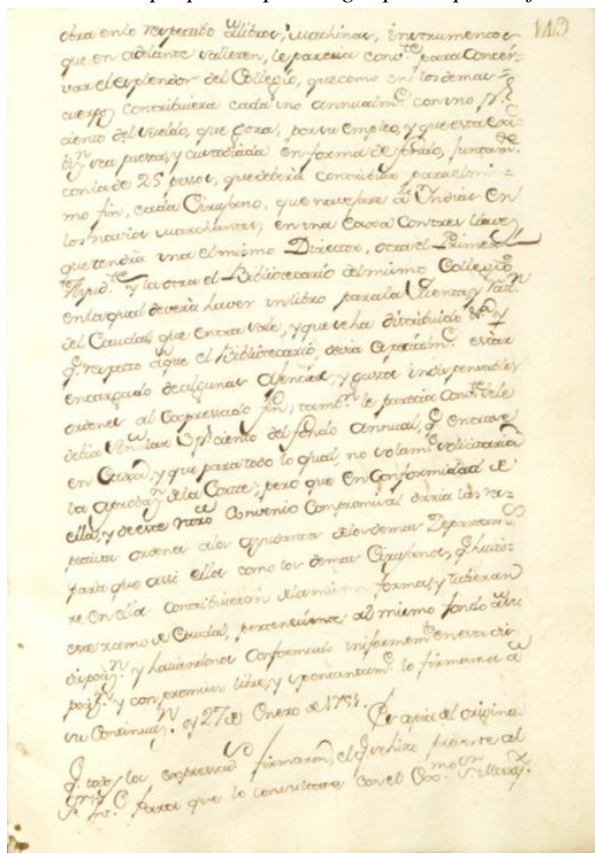 149
obra en lo respectibo a Libros, Machinas, instrumentos
que en adelante salieren, le parecia conv.te para conser=
var el esplendor del Collegio, que como en los demas
cuerpos contribuiera cada uno annualm.te con uno p.r
ciento del sueldo, que goza, por su empleo, y que esta
sea puesta, y custodiada en forma de fondo, juntam.te
con la de 25 pesos, que deberia contribuir para el mis=
mo fin, cada Cirujano, que navegare a Indias en
los navios marchantes, en una Caxa con tres llaves
que tendra una el mismo Director, otra el Primer
Ayud.te y la otra el Bibliotecario del mismo Collegio
en la qual deveria haver un libro para la Cuenta, y raz.n
del Caudal, que entra o sale, y que se ha distribuido
q.e respecto a que el Bibliotecario, devia estar
encargado de algunas y gastos indispensables
ordenes al expressado fin, tamb.n le parecia conv.te se le
debia señalar ciento del fondo annual, q.e
en Caxa, y que para todo lo qual, no solam.te solicitaria
la aprobaz.n de la Corte, pero que en conformidad de
ella, y de este nro Convenio Compromisal daria las res=
pectivas ordenes a los ayudantes de los demas Departam.s
para que assi ellos como los demas Cirujanos, q.e huvie=
re en ellos contribuieran de la misma forma, y tubieran
este ramo de Caudal, perteneciente al mismo fondo
y haviendonos conformado uniformem.te en esta dis
posiz.n y compromiso libre, y spontaneam.te lo firmamos a
su continuaz.n oy 27 de Enero de Es copia del origina
q.e todos los expressados firmaron, el q.e se hizo presente al
para que lo consultara con el Exmo